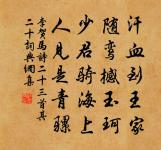 汗血到王家
随鸾撼玉珂
少君骑海上
人见是青骡
李贺马诗二十三首其
二十二词典网